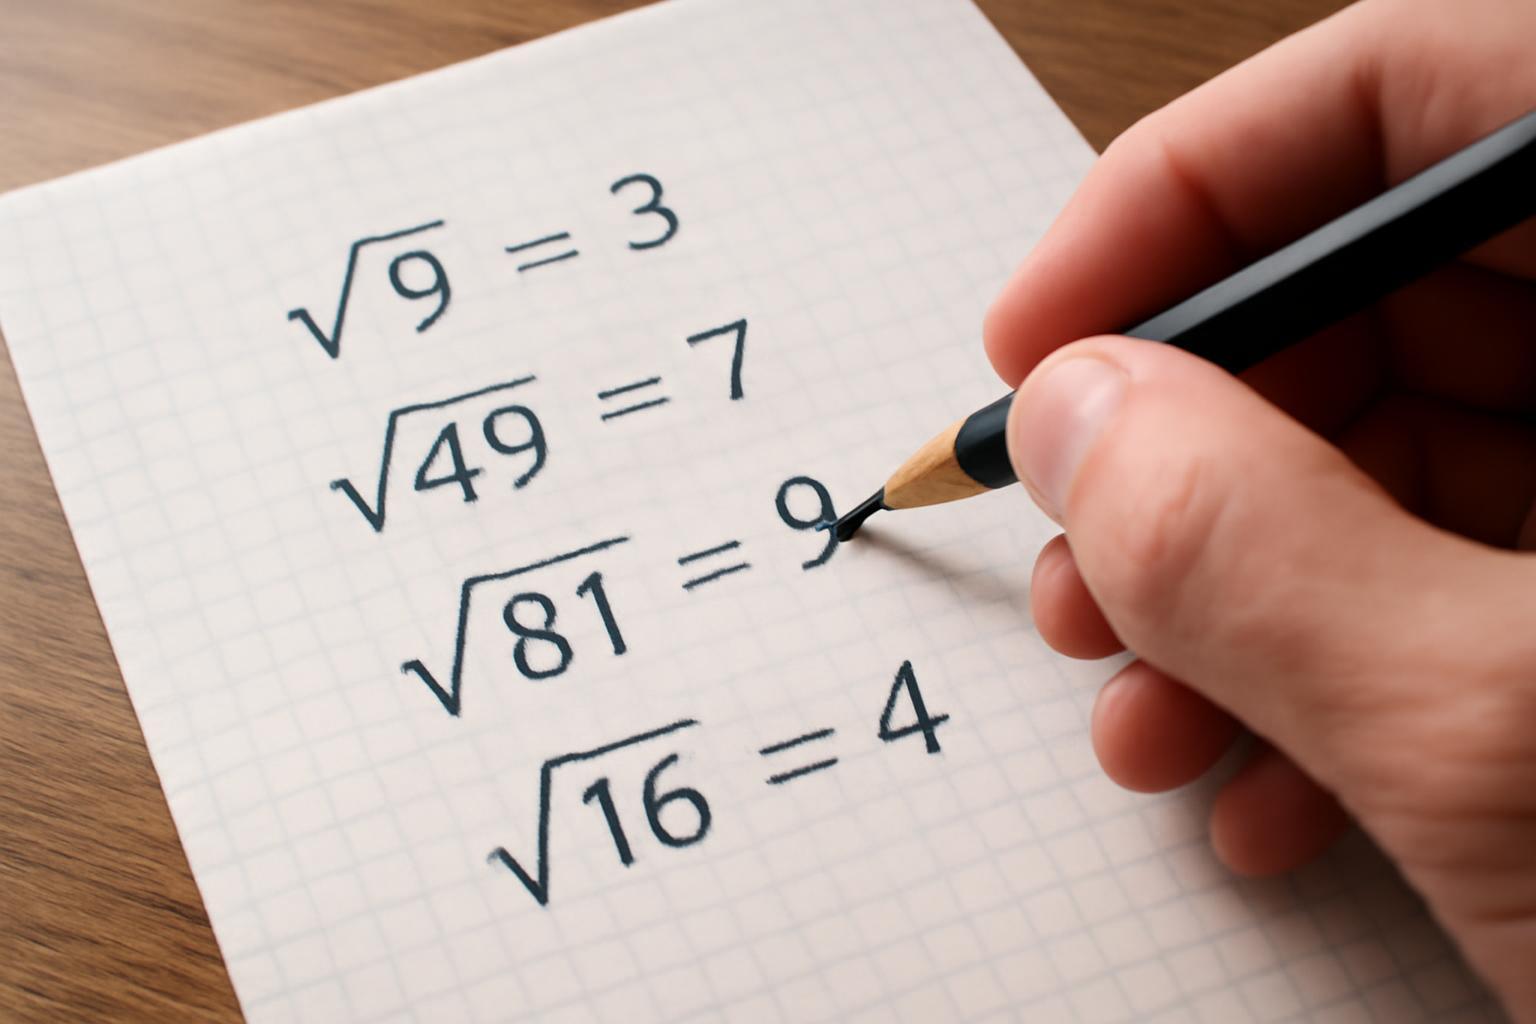 √9 = 3
√49 = 7
√81 = 9
√16 = 4